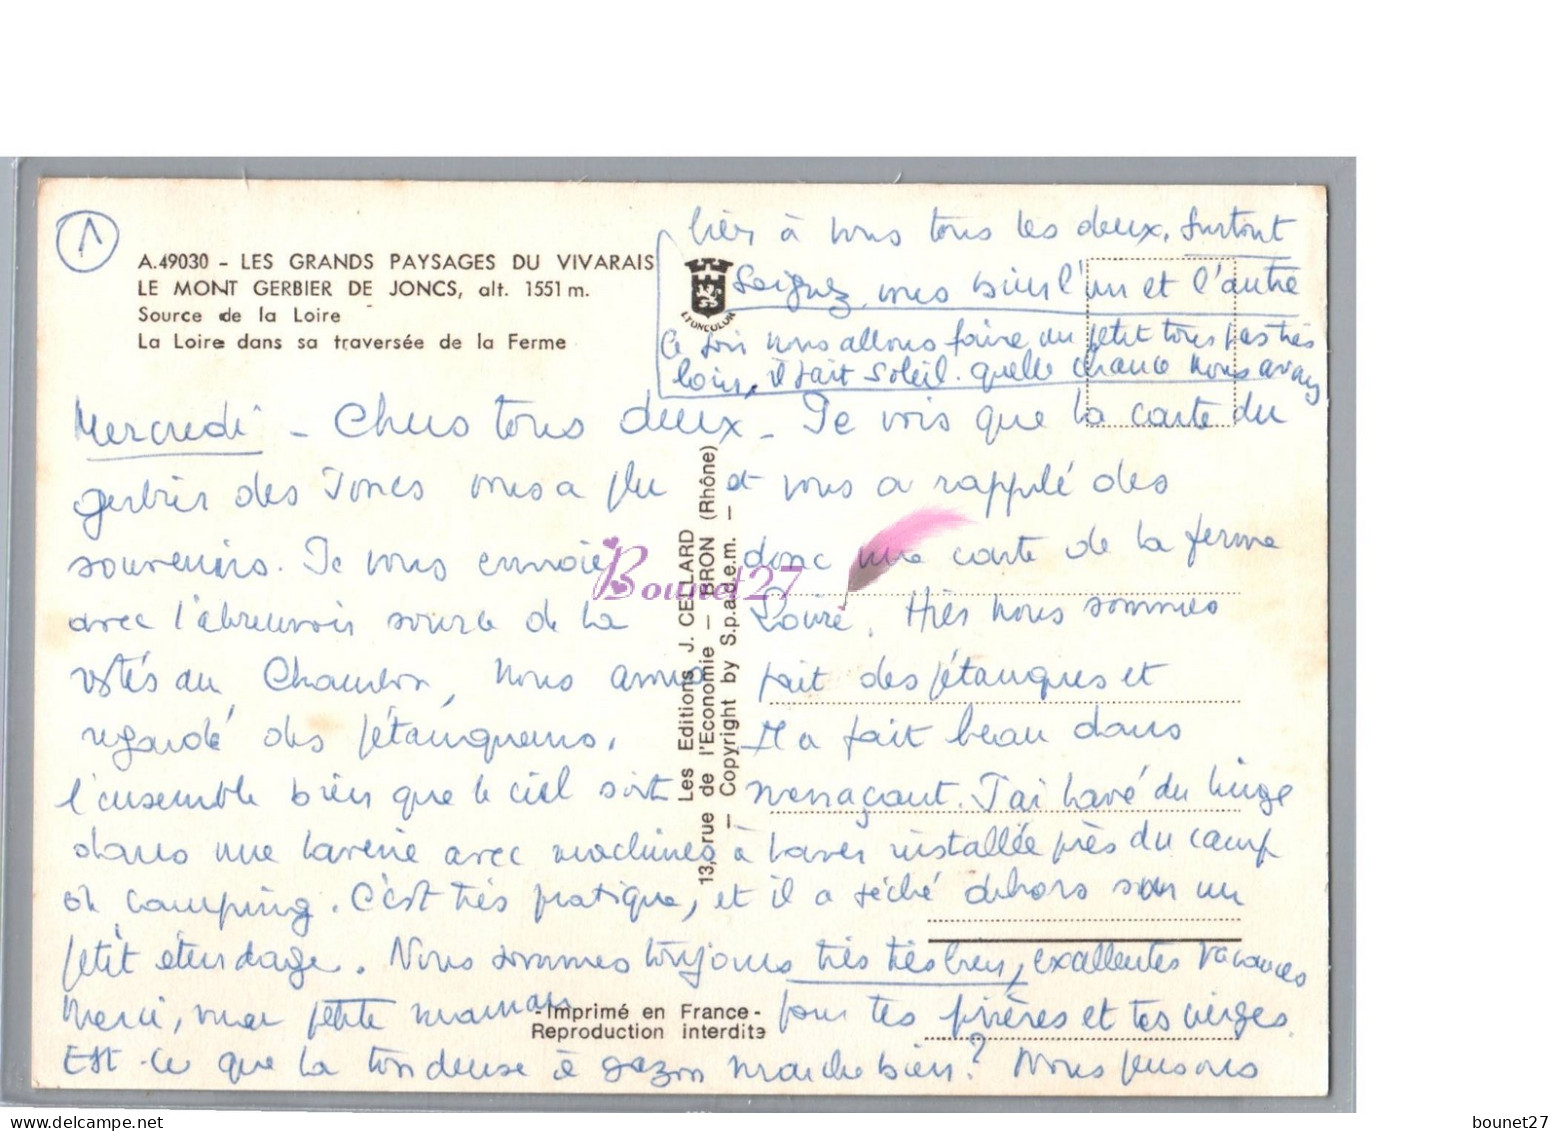 1
A.49030 - LES GRANDS PAYSAGES DU VIVARAIS
LE MONT GERBIER DE JONCS, alt. 1551 m.
Source de la Loire
La Loire dans sa traversée de la Ferme
LYONCOLOR
Mercredi - Chers tous deux - Je vois que la carte du
gerbier des Joncs vous a plu et vous a rappelé des
souvenirs. Je vous envoie donc une carte de la ferme
avec l'abreuvoir source de la Loire. Hier nous sommes
restés au Chambon, nous avons fait des pétanques et
regardé des pétanqueurs. Il a fait beau dans
l'ensemble bien que le ciel soit menaçant. J'ai lavé du linge
dans une laverie avec machines à laver installée près du camp
de camping. C'est très pratique, et il a séché dehors sur un
petit étendage. Nous sommes toujours très très bien, excellentes vacances
Merci, ma petite maman pour tes prières et tes cierges.
Est-ce que la tondeuse à gazon marche bien? Nous pensons
bien à vous tous les deux. Surtout
Soignez vous bien l'un et l'autre
Ce soir nous allons faire un petit tour pas très
loin, il fait soleil. quelle chance nous avons
Les Editions J. CELLARD
13, rue de l'Economie - BRON (Rhône)
- Copyright by S.p.a.d.e.m. -
- Imprimé en France -
Reproduction interdite
Bounet27
bounet27